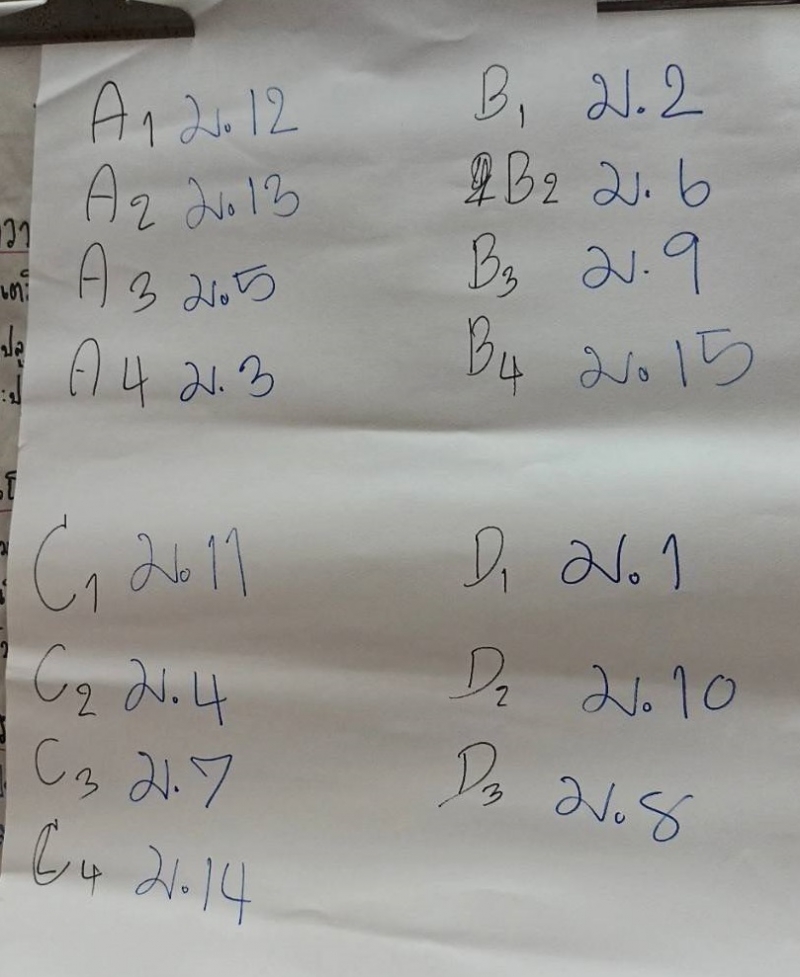 A1 ม.12
A2 ม.13
A3 ม.5
A4 ม.3
B1 ม.2
B2 ม.6
B3 ม.9
B4 ม.15
C1 ม.11
C2 ม.4
C3 ม.7
C4 ม.14
D1 ม.1
D2 ม.10
D3 ม.8